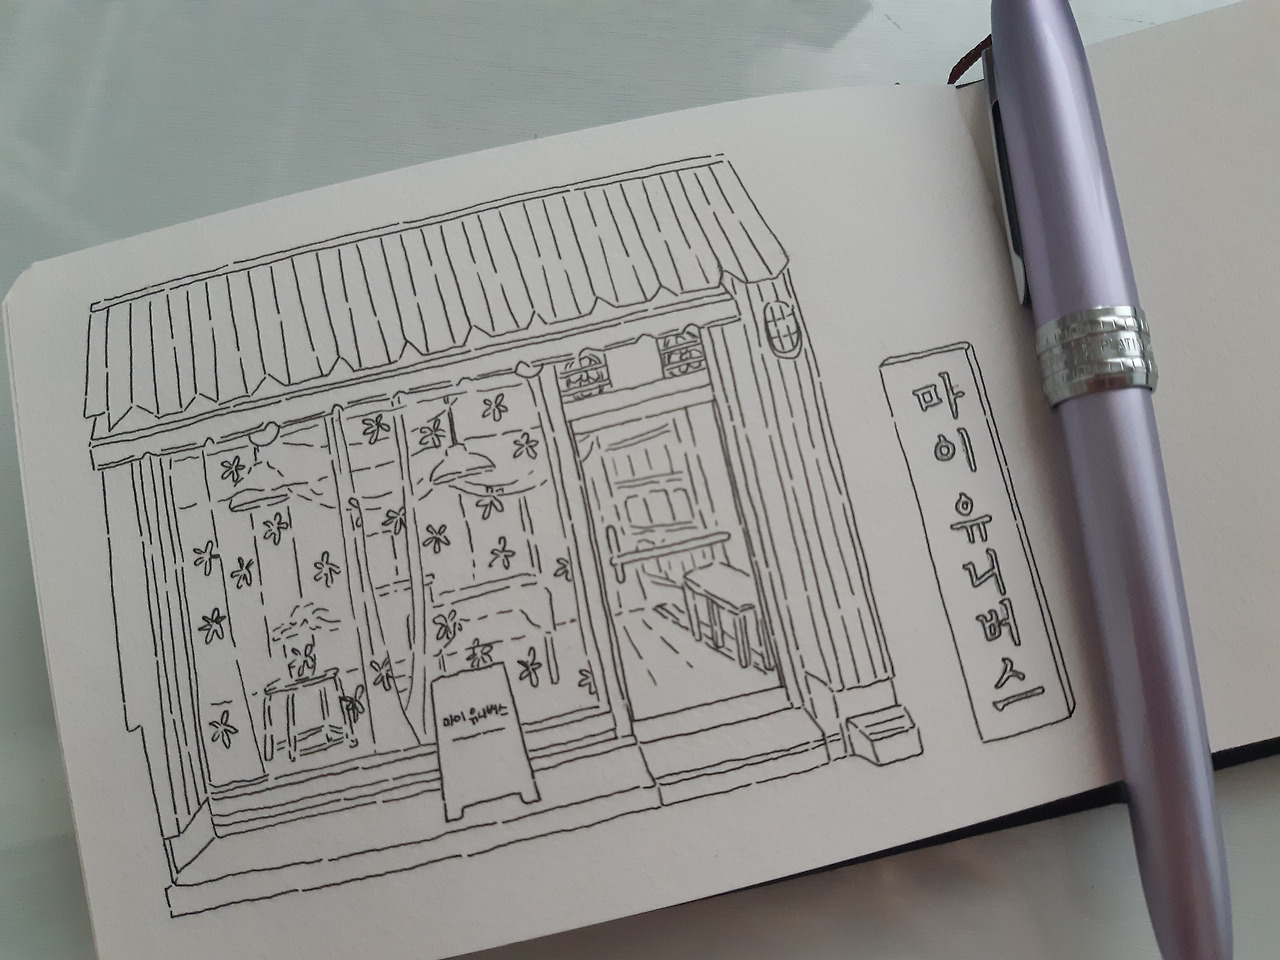 마이 유니버스
마이유니버스